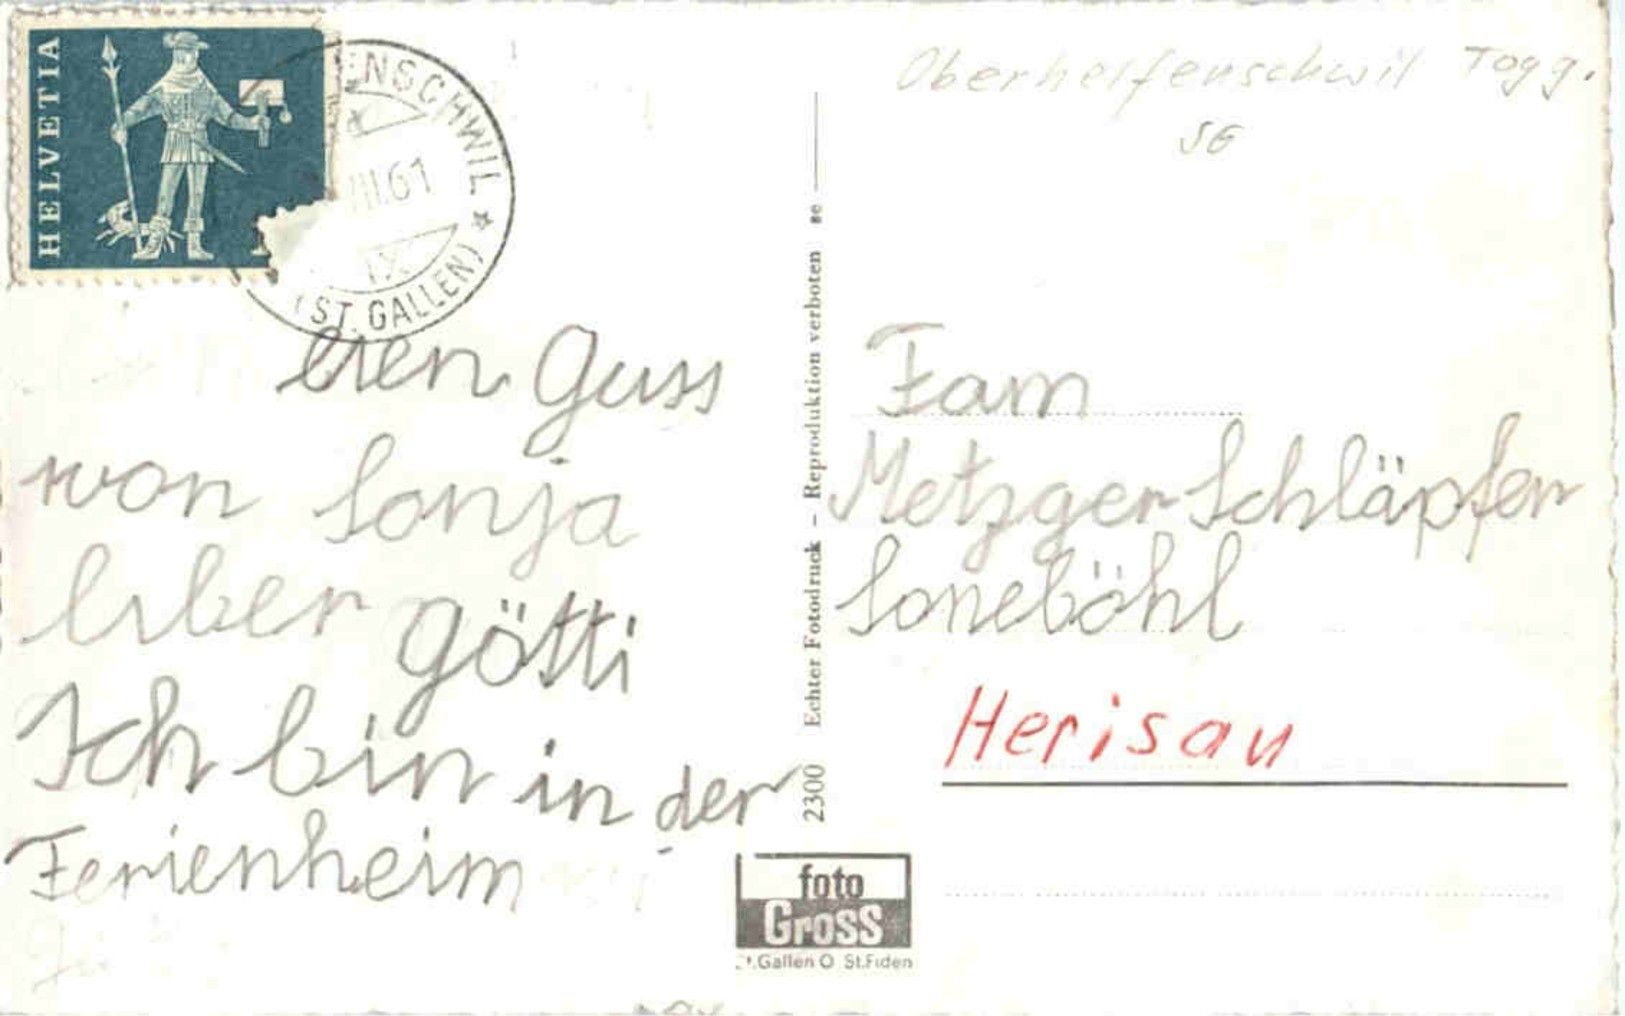 HELVETIA
ENSCHWIL
III.61
IX
(ST. GALLEN)
Oberhelfenschwil Togg.
SG
eien Guss
von Sonja
liber götti
Ich bin in der
Ferienheim
2300 Echter Fotodruck – Reproduktion verboten se
Fam
Metzger Schläpfer
Soneböhl
Herisau
foto
Gross
St.Gallen O St.Fiden